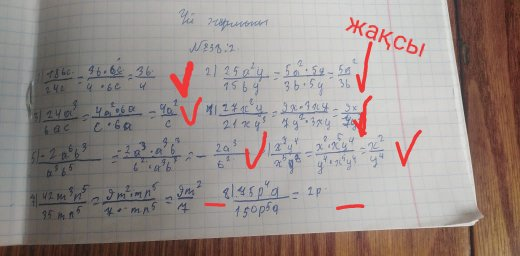 Үй жұмысы
жақсы
№238:2
1) 18bc/24c = 3b·6c/4·6c = 3b/4 2) 25a²y/15by = 5a²·5y/3b·5y = 5a²/3b
3) 24a³/6ac = 4a²·6a/c·6a = 4a²/c 4) 27x²y/21xy³ = 9x·3xy/7y²·3xy
5) -2a⁶b³/a³b⁵ = -2a³·a³b³/b²·a³b³ = - 2a³/b² x³y⁴/x⁵y⁸ = x²·xy⁴/y⁴·x⁴y⁴ = x²/y⁴
7) 42m³n⁵/35mn⁵ = 9m²·mn⁵/7·mn⁵ = 9m²/7 8) 75p⁴q/150p⁵q = 2p